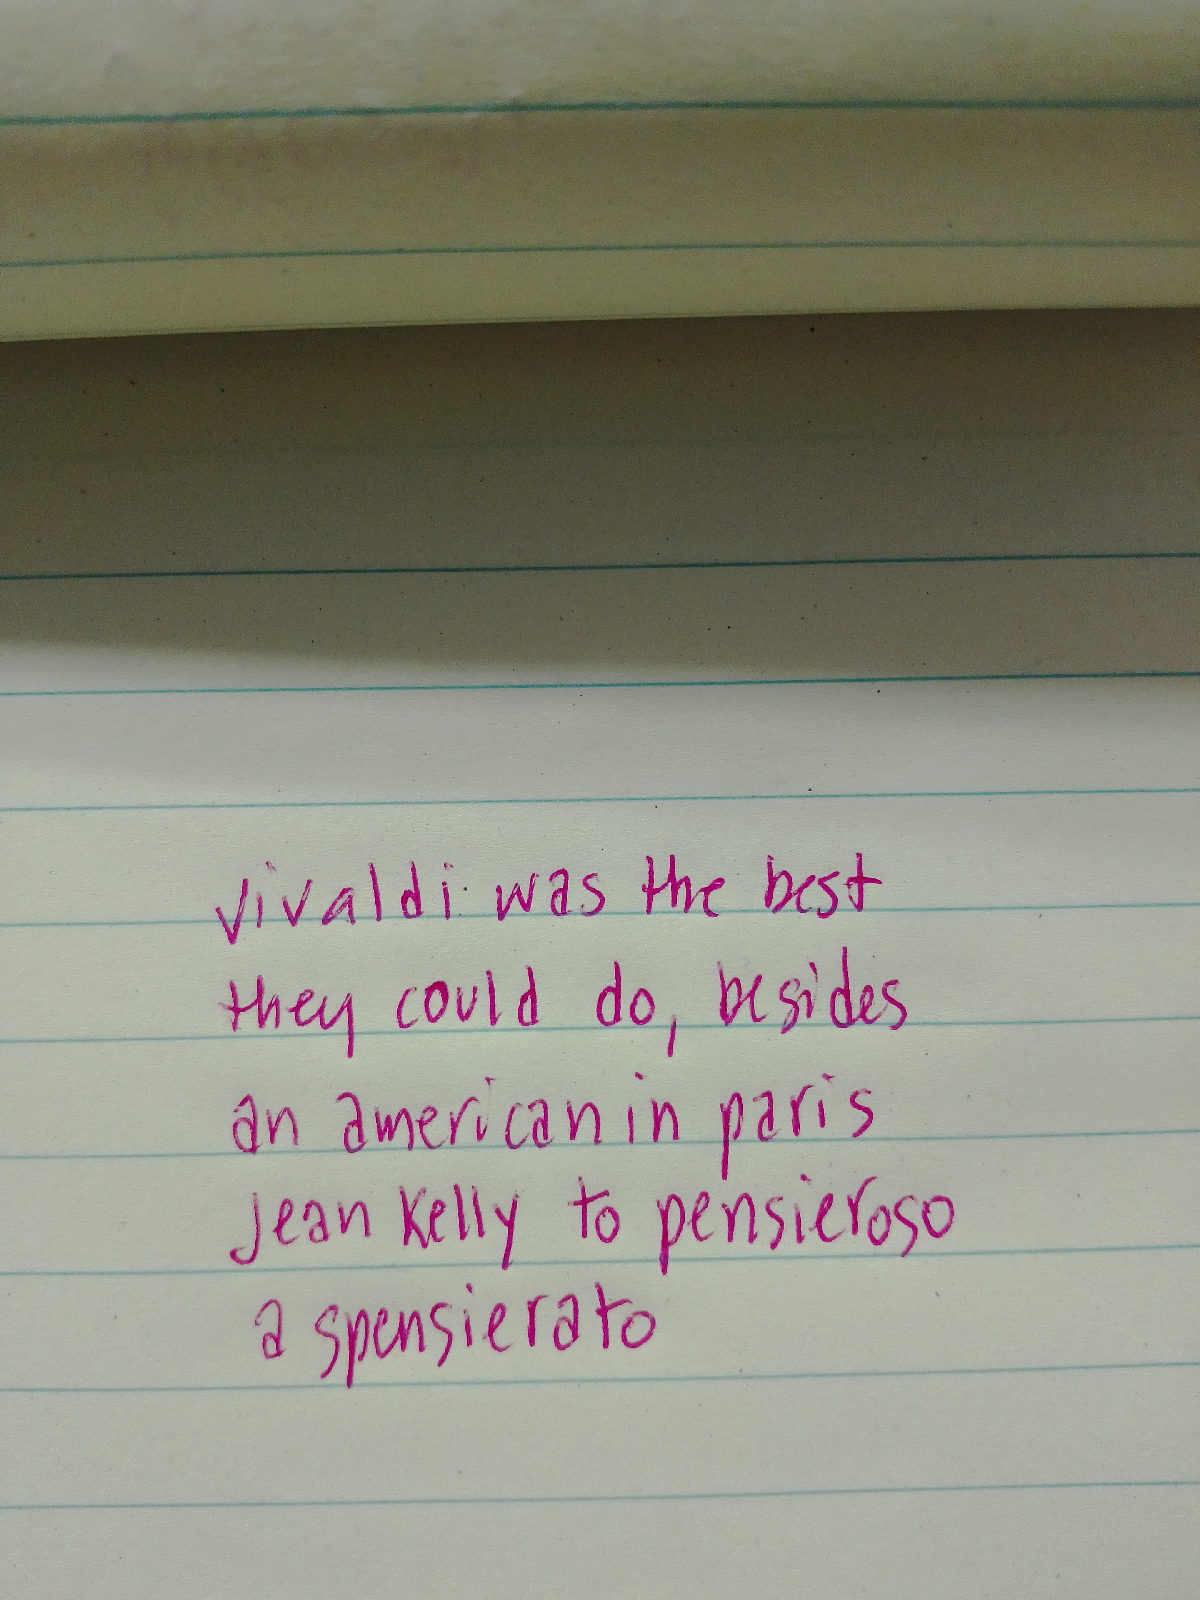 vivaldi was the best
they could do, besides
an american in paris
Jean Kelly to pensieroso
a spensierato